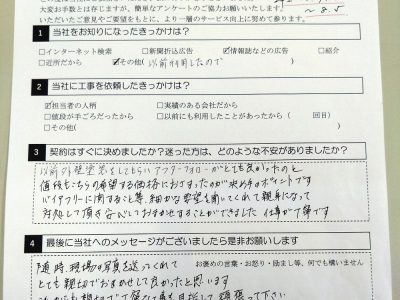 大変お手数とは存じますが、簡単なアンケートのご協力お願いします。
いただいたご意見やご要望をもとに、より一層のサービス向上に努めて参ります。
~8.5
1 当社をお知りになったきっかけは？
□インターネット検索 □新聞折込広告 ☑情報誌などの広告 □紹介
□近所だから ☑その他( 以前利用したので )
2 当社に工事を依頼したきっかけは？
☑担当者の人柄 □実績のある会社だから
□値段が手ごろだったから □以前にも利用したことがあったから ( 回目)
□その他( )
3 契約はすぐに決めましたか？迷った方は、どのような不安がありましたか？
以前外壁塗装をしてもらいアフターフォローがとても良かったのと
価格もこちらの希望する価格におさまったのが決め手のポイントです
バイアフリーに関すること等 細かな要望を聞いてくれて親身になって
対処して頂き安心しておまかせすることができました 仕事が丁寧です
4 最後に当社へのメッセージがございましたら是非お願いします
お褒めの言葉・お怒り・励まし等、何でも構いません
随時、現場の写真を送ってくれて
とても親切でおまかせして良かったと思います
頑張って下さい